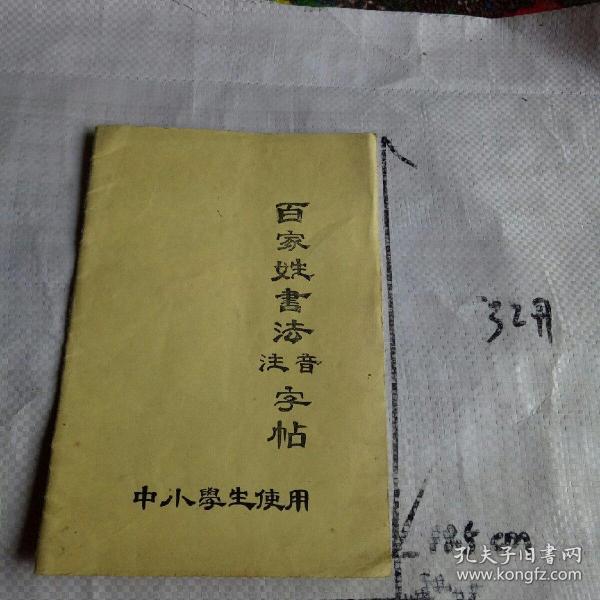 百家姓書法
注音
字帖
中小學生使用
32开
18.5 cm
孔夫子旧书网
www.kongfz.com